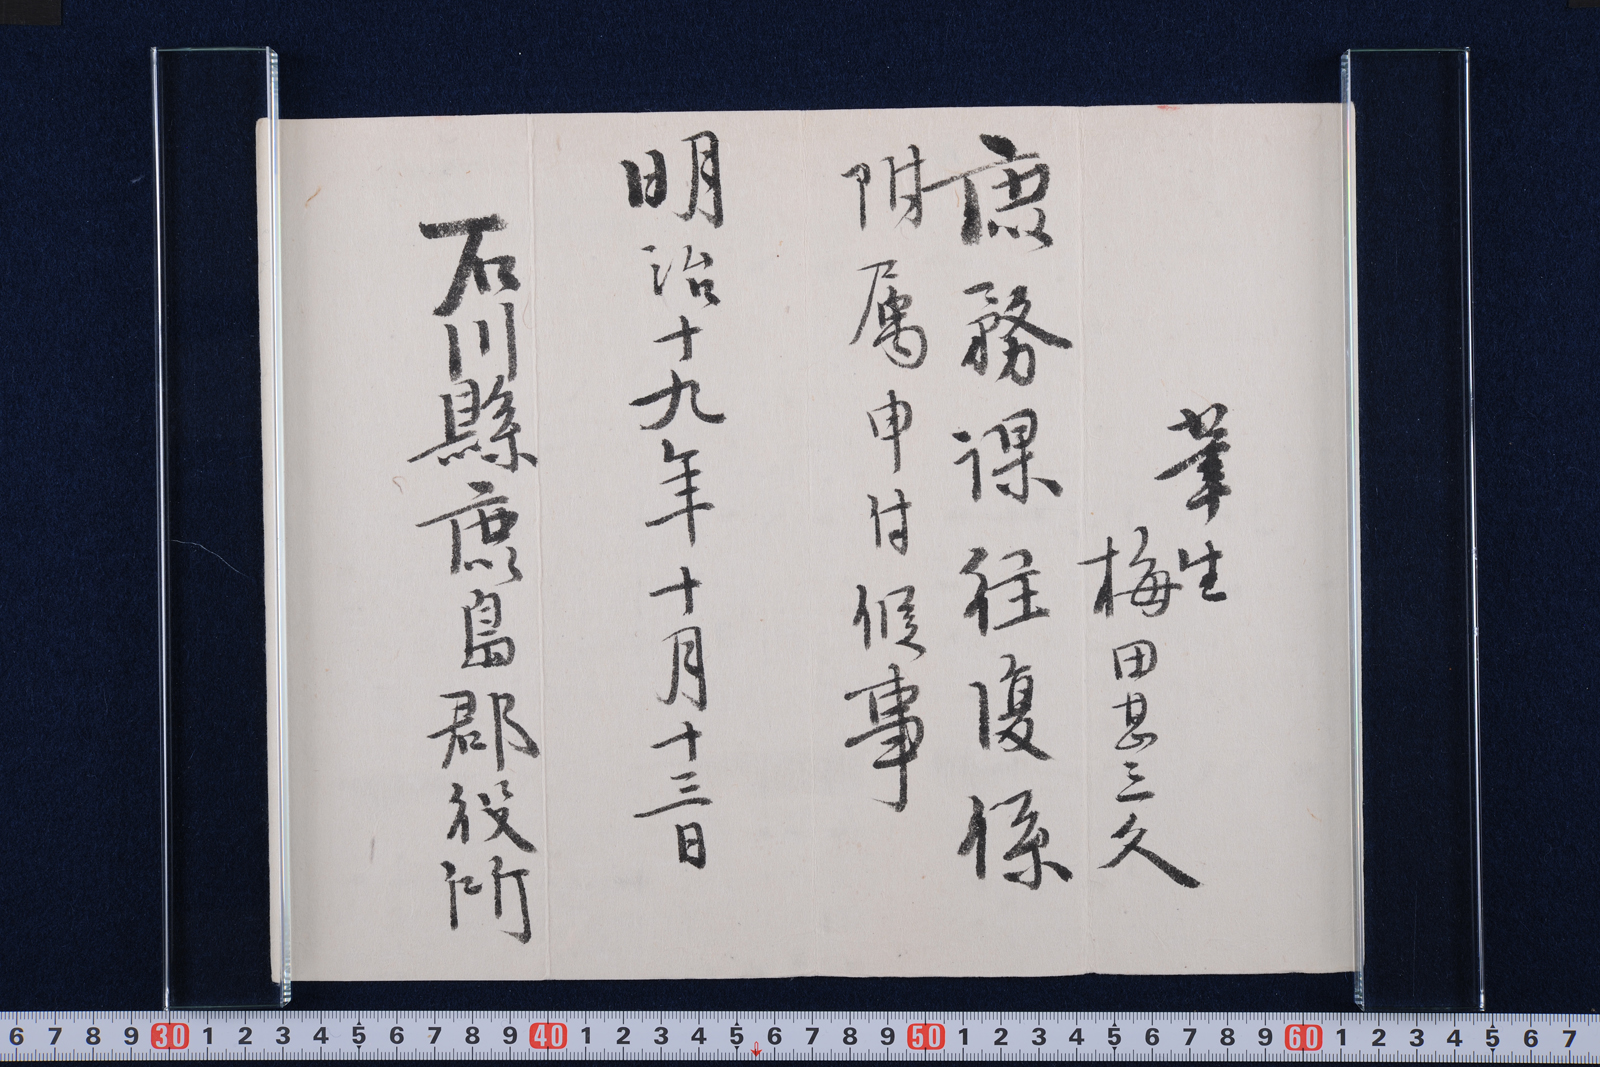 筆生
梅田甚三久
庶務課往復係
附属申付候事
明治十九年十月十三日
石川縣鹿島郡役所
6 7 8 9 30 1 2 3 4 5 6 7 8 9 40 1 2 3 4 5 6 7 8 9 50 1 2 3 4 5 6 7 8 9 60 1 2 3 4 5 6 7